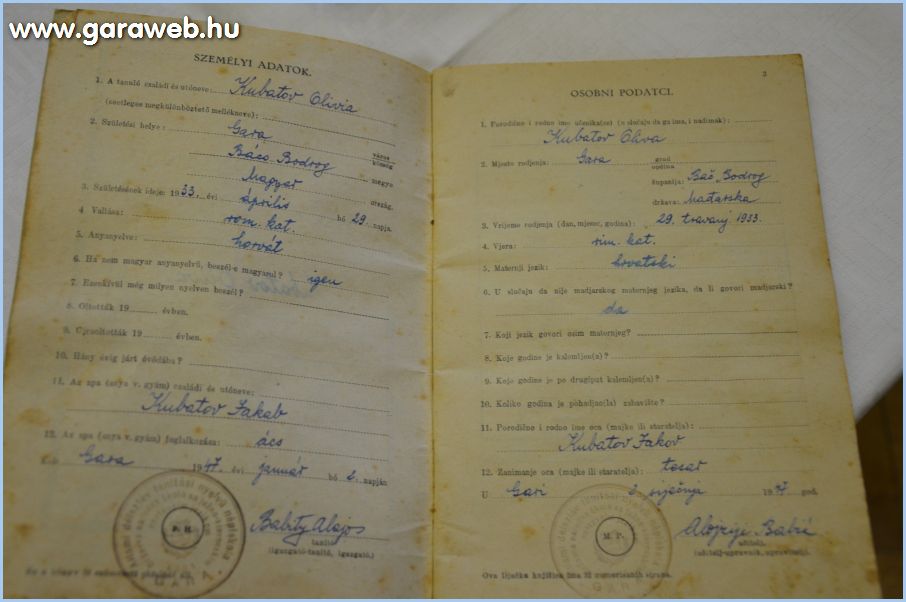 www.garaweb.hu
SZEMÉLYI ADATOK.
1. A tanuló családi és utóneve: Kubatov Olivia
(esetleges megkülönböztető mellékneve):
2. Születési helye: Gara város
község
Bács Bodrog megye
Magyar ország.
3. Születésének ideje: 1933. évi április hó 29. napja.
4 Vallása: rom. kat.
5. Anyanyelve: horvát
6. Ha nem magyar anyanyelvű, beszél-e magyarul? igen
7. Ezenkívül még milyen nyelven beszél?
8. Oltották 19 évben.
9. Újraoltották 19 évben.
10. Hány évig járt óvódába?
11. Az apa (anya v. gyám) családi és utóneve:
Kubatov Jakab
12. Az apa (anya v. gyám) foglalkozása: ács
Kelt Gara 1947 évi január hó 2. napján
P. H.
GARA
tanító
(igazgató-tanító, igazgató).
3
OSOBNI PODATCI.
1. Porodično i rodno ime učenika(ce) (u slučaju da ga ima, i nadimak):
Kubatov Oliva
2. Mjesto rodjenja: Gara grad
općina
županija: Bač Bodrog
država: Mađarska
3. Vrijeme rodjenja (dan, mjesec, godina): 29. travanj 1933.
4. Vjera: rim. kat.
5. Maternji jezik: hrvatski
6. U slučaju da nije madjarskog maternjeg jezika, da li govori madjarski?
da
7. Koji jezik govori osim maternjeg?
8. Koje godine je kalemljen(a)?
9. Koje godine je po drugiput kalemljen(a)?
10. Koliko godina je pohadjao(la) zabavište?
11. Porodično i rodno ime oca (majke ili staratelja):
Kubatov Jakov
12. Zanimanje oca (majke ili staratelja): tesar
U Gari 2 siječnja 1947 god.
M. P.
GARA
učitelj.
(učitelj-upravnik, upravitelj).
Ova Djačka knjižica ima 32 numerisanih strana.